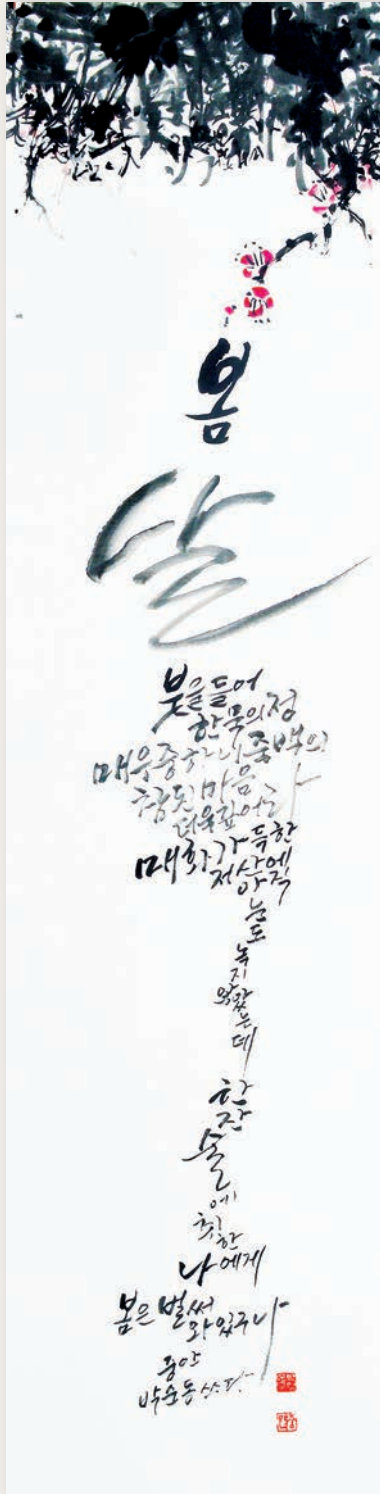 봄
날
붓을 들어
한묵의 정
매우 중하니 중백의
참된 마음
더욱 깊어라
매화 가득한
저 산에
아직
눈도
녹지
않았는데
한
잔
술
에
취
한
나에게
봄은 벌써
와 있구나
중안
박순동 쓰다